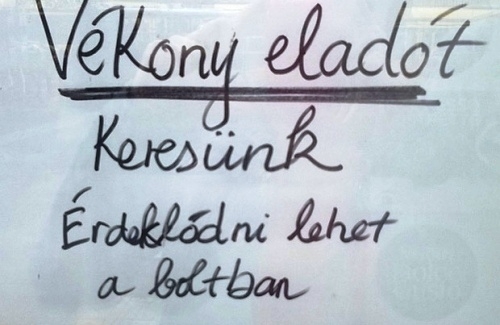 Vékony eladót
Keresünk
Érdeklődni lehet
a boltban